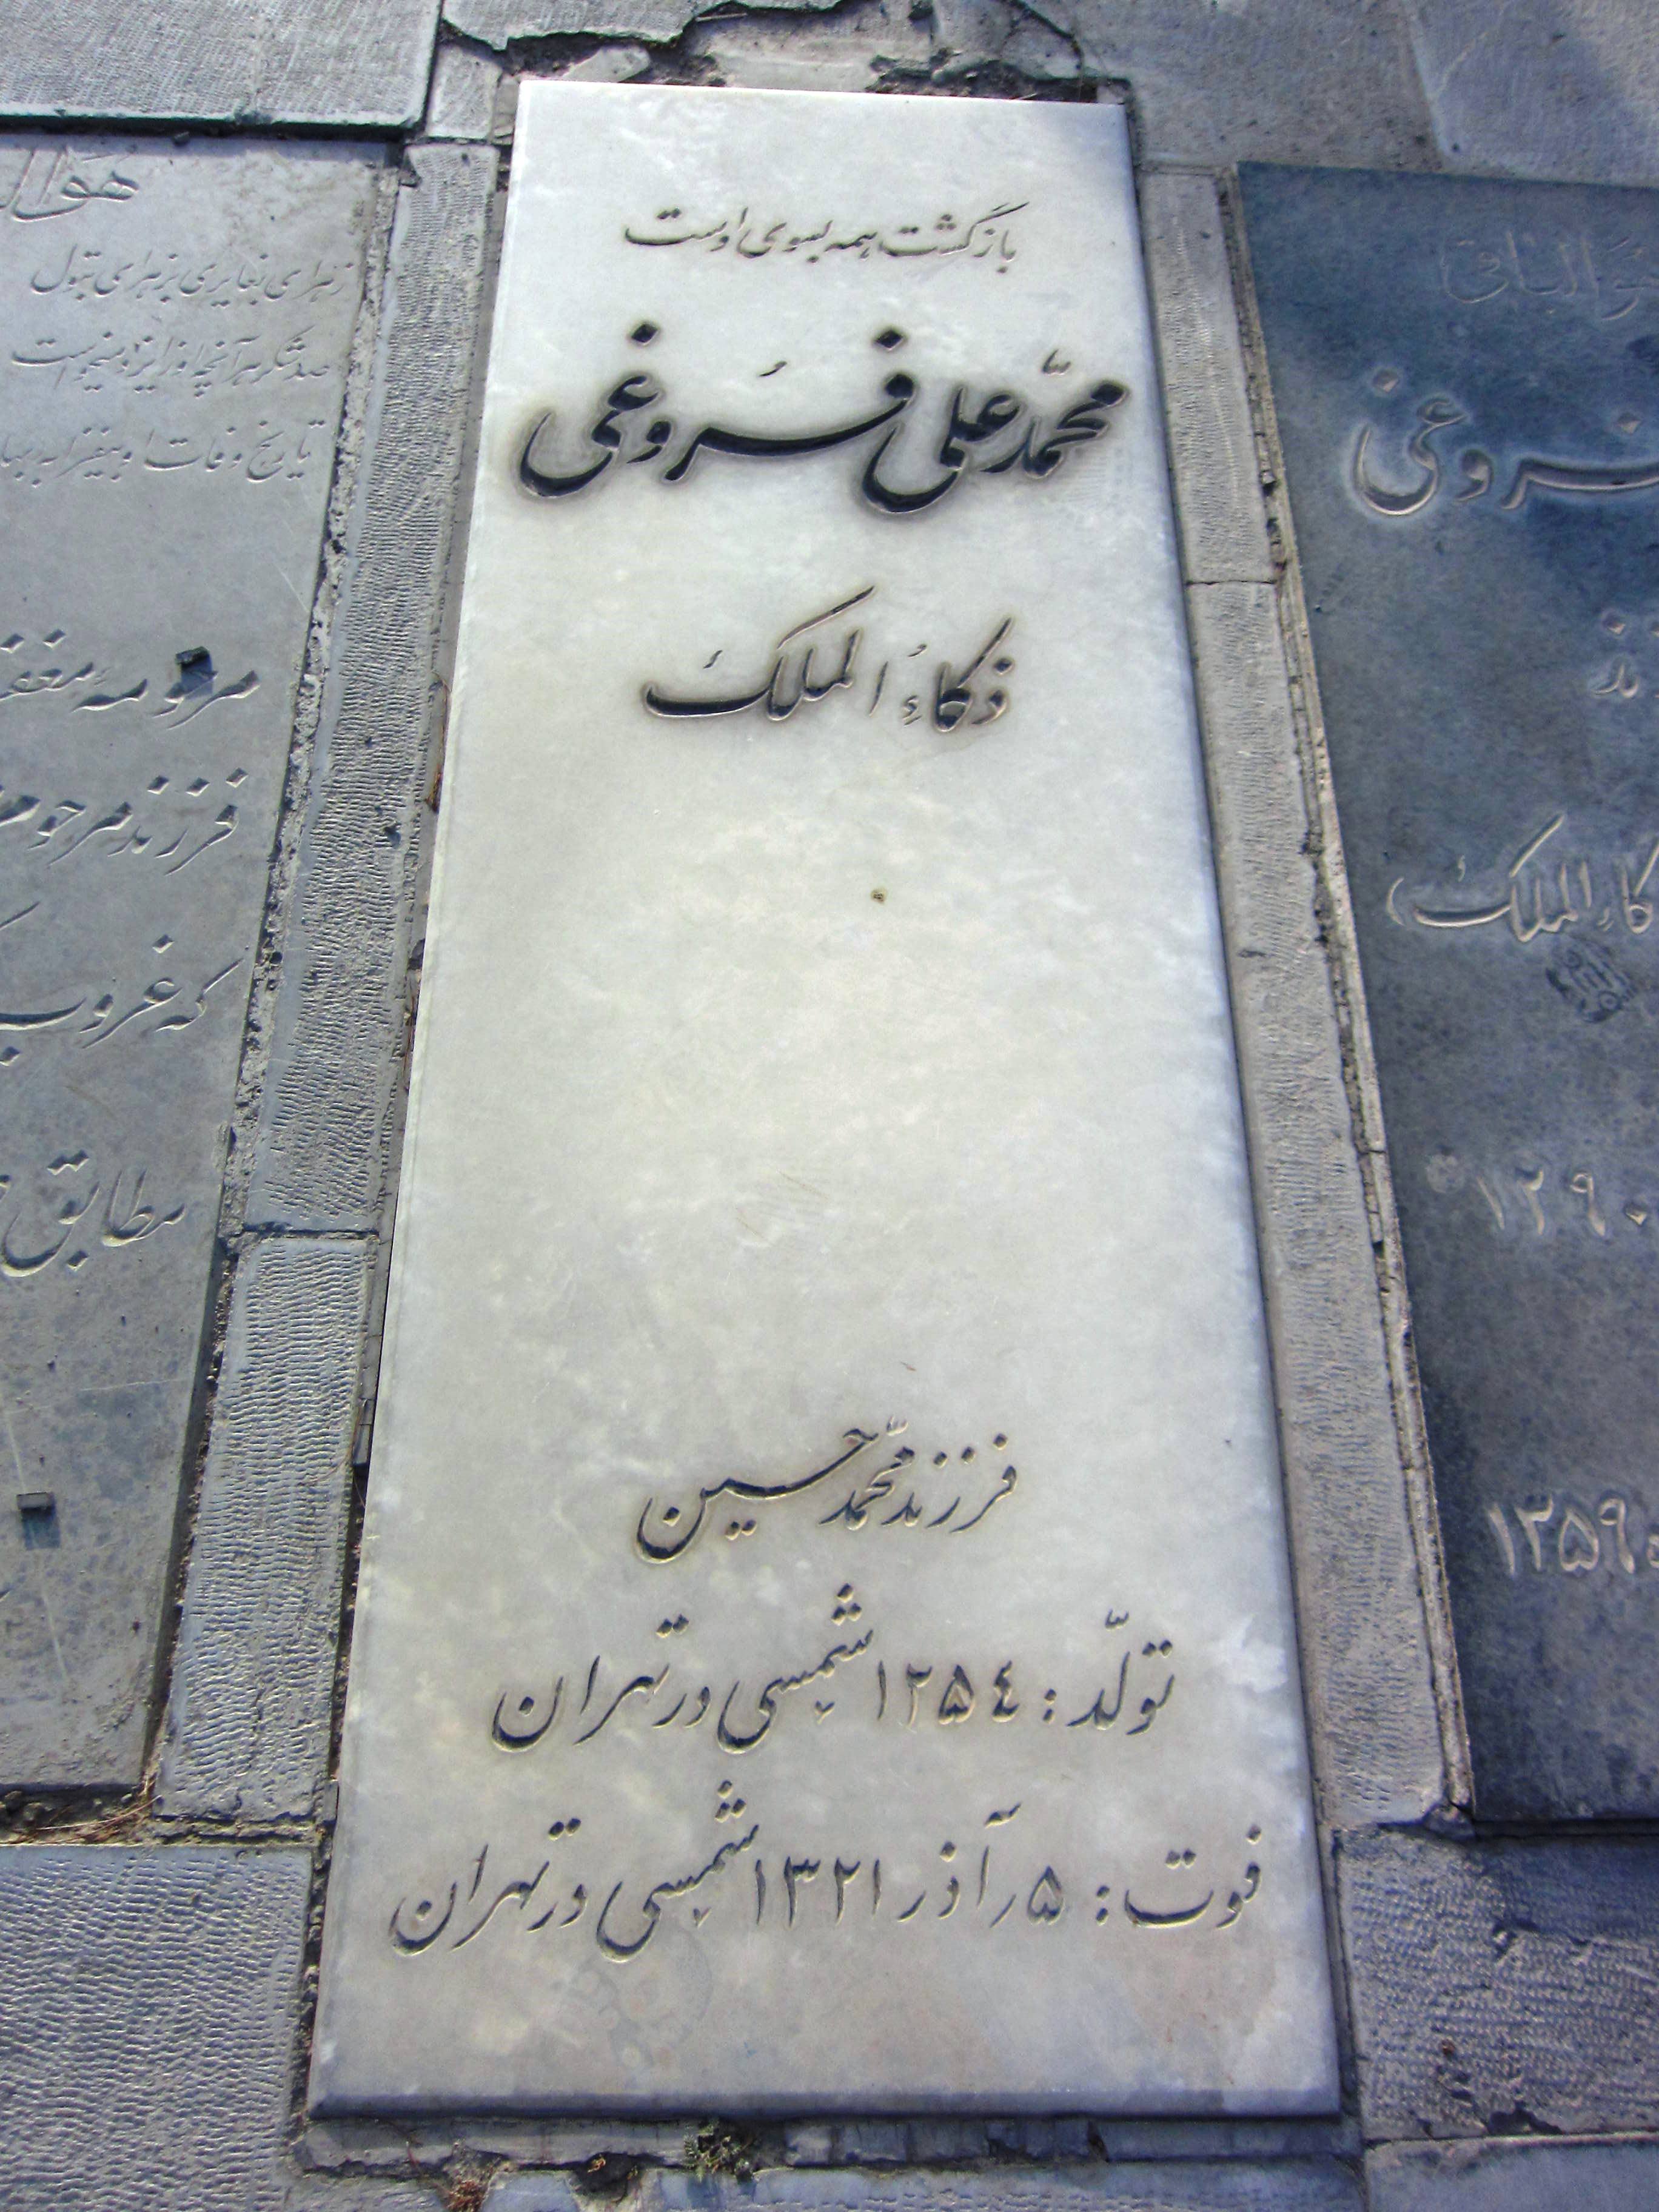 بازگشت همه بسوی اوست
محمّد علی فروغی
ذکاءِ المُلک
فرزند محمّد حسین
تولّد : ۱۲۵٤ شمسی در تهران
فوت : ۵ر آذر ۱۳۲۱ شمسی در تهران
هوال
زهرای بغایری بزهرای بتول
صد شکر هر آنچه از ایزد
تاریخ وفات او
مرحومه مغفو
فرزند مرحوم
که غروب
مطابق
هوالباقی
فروغی
کاءالملک)
۱۲۹۰
۱۳۵۹